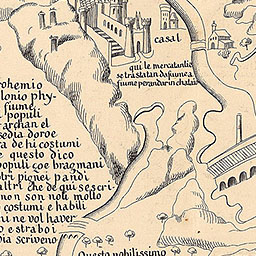 casal
qui le mercatantie
se traslatan da fiume a
fiume per andar in chataio
ohemio
lonio phy-
fiume
i populi
archan el
sedia doroe
ra de hi costumi
e questo dico
populi coe bragmani
tri pionei pandi
altri che de qui se scri
non son noli molto
costumi e habili
ni ne vol haver
o e straboi
ia scriveno
Questo nobilissimo